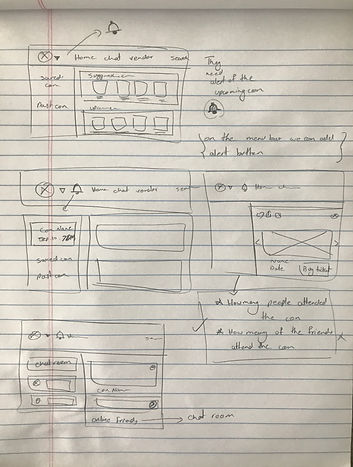 Home chat vendor search
They
need
alert of the
upcoming con
Saved
con
Past con
on the menu bar we can add
alert button
Home chat vendor
Con Name
Saved con
Past con
Name
Date
Buy ticket
How many people attended
the con
How many of the friends
attend the con
chat room
Con Name
online friends
chat room